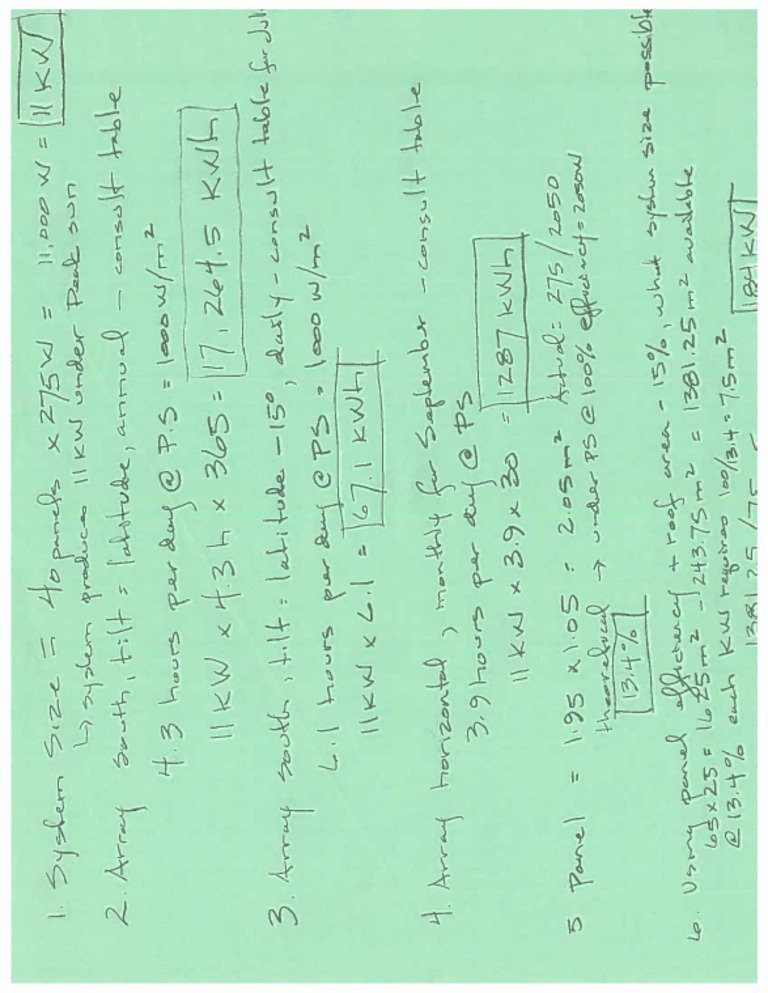 1. System Size = 40 panels x 275W = 11,000 W = 11 KW
↳ system produces 11 KW under Peak sun
2. Array South, tilt = latitude, annual - consult table
4.3 hours per day @ P.S = 1000 W/m²
11 KW x 4.3 h x 365 = 17,264.5 KWh
3. Array South, tilt = latitude - 15°, daily - consult table for
6.1 hours per day @ PS = 1000 W/m²
11 KW x 6.1 = 67.1 KWh
4. Array horizontal, monthly for September - consult table
3.9 hours per day @ PS
11 KW x 3.9 x 30 = 1287 KWh
5 Panel = 1.95 x 1.05 = 2.05 m² Actual = 275/2050
theoretical → under PS @ 100% efficiency = 2050W
13.4%
6. Using panel efficiency + roof area - 15%, what system size possible
65 x 25 = 1625 m² - 243.75 m² = 1381.25 m² available
@ 13.4% each KW requires 100/13.4 = 7.5 m²
1381.25/7.5 = 184 KW